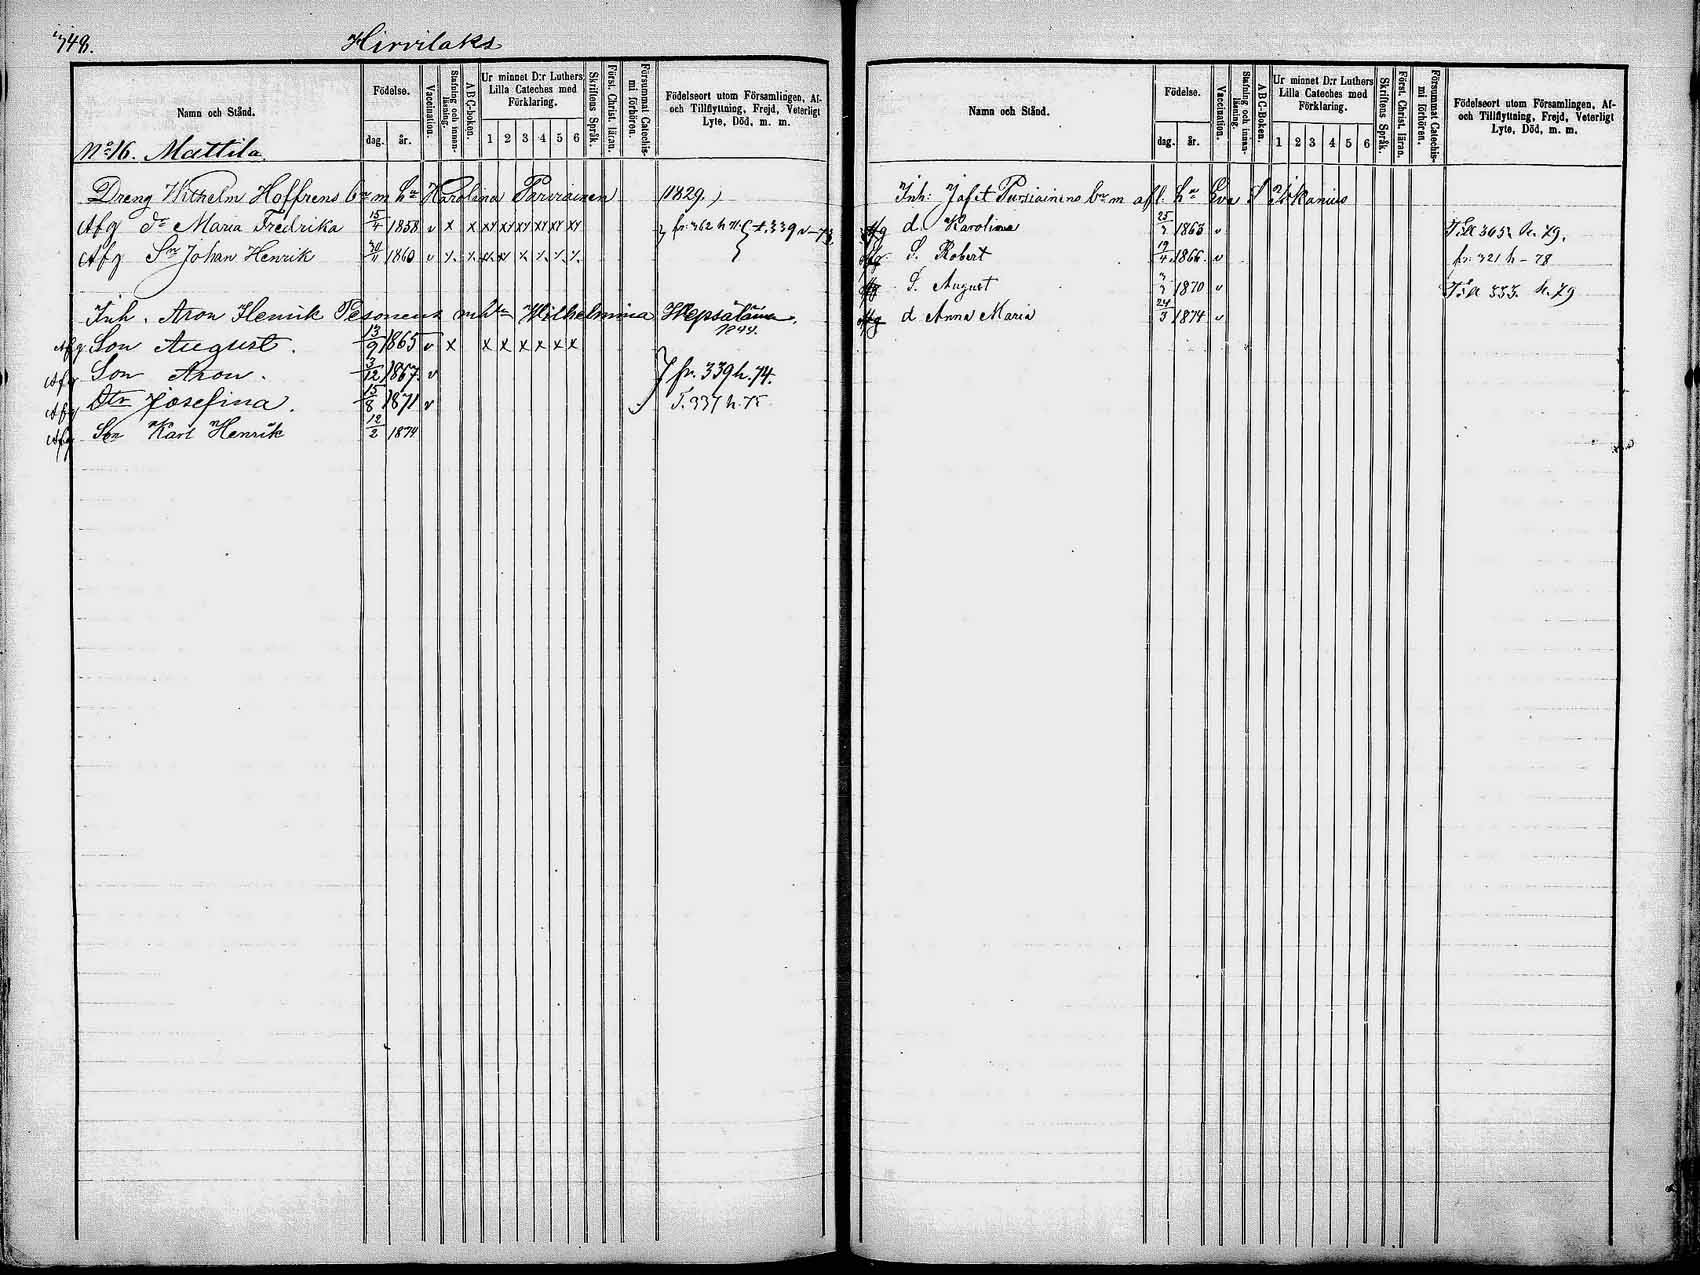 348.
Hirvilaks
Namn och Stånd.
Födelse.
dag. år.
Vaccination.
Stafning och innanläsning.
ABC-boken.
Ur minnet D:r Luthers Lilla Cateches med Förklaring.
1 2 3 4 5 6
Skriftens Språk.
Först. Christ. läran.
Försummat Catechismi förhören.
Födelseort utom Församlingen, Af- och Tillflyttning, Frejd, Veterligt Lyte, Död, m. m.
No 16. Mattila.
Dreng Wilhelm Hoffrens bn m hu Karolina Parviainen (1829.)
Afg dr Maria Fredrika 15/4 1858 v x x xy xy xy xy xy xy fr. 362 h
Afg Sn Johan Henrik 30/11 1860 v
Inh. Aron Henrik Pesonens m hu Wilhelmina Hepsäläinen.
Afg Son August. 13/9 1865 v x x x x x x x
Afg Son Aron. 3/12 1867. v } fr. 339 h. 74.
Afg Dtr Josefina. 15/8 1871 v T. 337 h. 75
Afg Son Karl Henrik 12/2 1874
Namn och Stånd.
Födelse.
dag. år.
Vaccination.
Stafning och innanläsning.
ABC-Boken.
Ur minnet D:r Luthers Lilla Cateches med Förklaring.
1 2 3 4 5 6
Skriftens Språk.
Först. Christ. läran.
Försummat Catechismi förhören.
Födelseort utom Församlingen, Af- och Tillflyttning, Frejd, Veterligt Lyte, Död, m. m.
Inh: Jafet Pursiainens bn m afl. hu Eva
Afg d. Karolina 25/3 1863 v 365 h. 79.
Afg S. Robert 19/4 1866. v fr. 321 h - 78
Afg S. August 3/3 1870 v 333. h. 79
Afg d. Anna Maria 24/3 1874 v